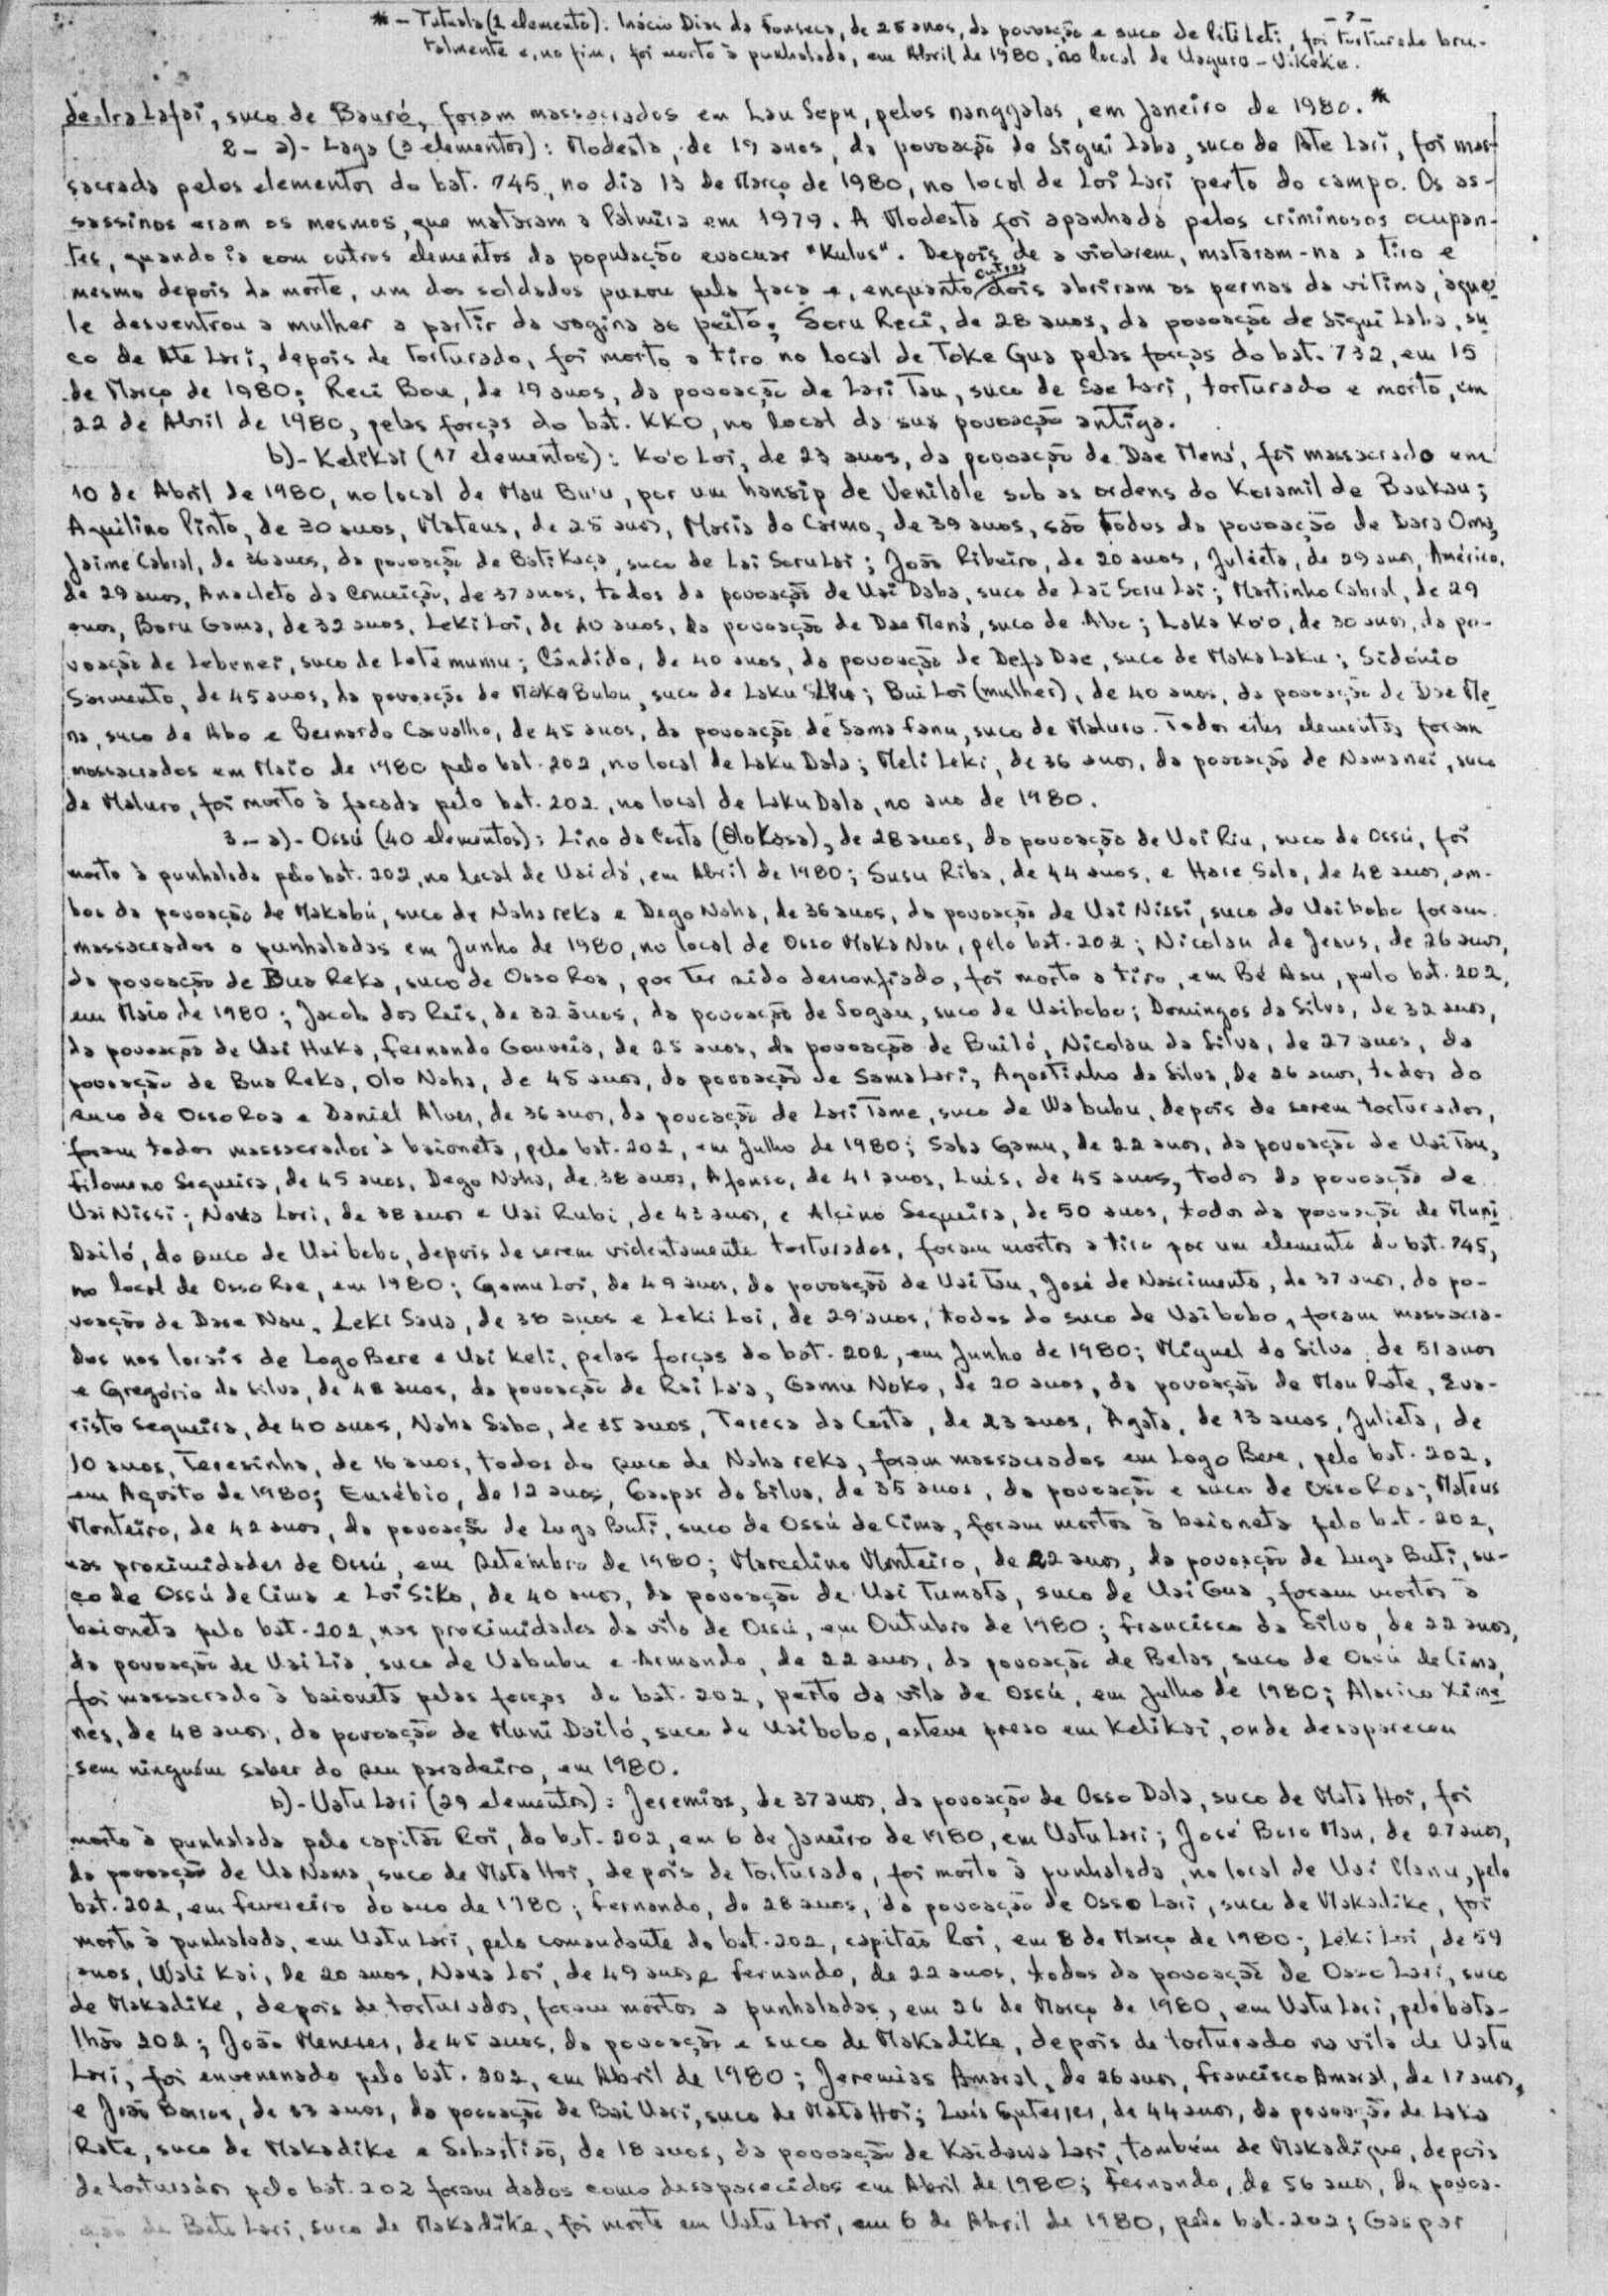 - 7 -
* - Tutuala (1 elemento): Inácio Dias da Fonseca, de 25 anos, da povoação e suco de Piti Leti, foi torturado bru-
talmente e, no fim, foi morto à punhalada, em Abril de 1980, no local de Uaguro - Vikeke.
de Ira Lafai, suco de Bauró, foram massacrados em Lau Sepu, pelos nanggalas, em Janeiro de 1980. *
2 - a) - Laga (3 elementos): Modesta, de 19 anos, da povoação de Sigui Laba, suco de Ate Lari, foi mas-
sacrada pelos elementos do bat. 745, no dia 13 de Março de 1980, no local de Loi Lari perto do campo. Os as-
sassinos eram os mesmos, que mataram a Palmira em 1979. A Modesta foi apanhada pelos criminosos ocupan-
tes, quando ia com outros elementos da população evacuar "Kulus". Depois de a violarem, mataram-na a tiro e
mesmo depois da morte, um dos soldados puxou pela faca e, enquanto outros dois abriram as pernas da vítima, aque-
le desventrou a mulher a partir da vagina ao peito; Soru Reci, de 28 anos, da povoação de Sigui Laba, su
co de Ate Lari, depois de torturado, foi morto a tiro no local de Toke Gua pelas forças do bat. 732, em 15
de Março de 1980; Reci Bou, de 19 anos, da povoação de Lari Tau, suco de Sae Lari, torturado e morto, em
22 de Abril de 1980, pelas forças do bat. KKO, no local da sua povoação antiga.
b) - Kelikai (17 elementos): Ko'o Loi, de 23 anos, da povoação de Dae Mená, foi massacrado em
10 de Abril de 1980, no local de Mau Bu'u, por um hansip de Venilale sob as ordens do Koramil de Baukau;
Aquilino Pinto, de 30 anos, Mateus, de 25 anos, Maria do Carmo, de 39 anos, são todos da povoação de Dara Oma,
Jaime Cabral, de 36 anos, da povoação de Bati Kaça, suco de Lai Soru Lai; João Ribeiro, de 20 anos, Julieta, de 29 anos, Américo,
de 29 anos, Anacleto da Conceição, de 37 anos, todos da povoação de Uai Daba, suco de Lai Soru Lai; Martinho Cabral, de 29
anos, Boru Gama, de 32 anos, Leki Loi, de 40 anos, da povoação de Dae Mená, suco de Abo; Laka Ko'o, de 30 anos, da po-
voação de Lebenei, suco de Letemumu; Cândido, de 40 anos, da povoação de Defa Dae, suco de Maka Laku; Sidónio
Sarmento, de 45 anos, da povoação de Maka Bubu, suco de Laku; Bui Loi (mulher), de 40 anos, da povoação de Dae Me
na, suco de Abo e Bernardo Carvalho, de 45 anos, da povoação de Sama Fanu, suco de Maluro. Todos estes elementos foram
massacrados em Maio de 1980 pelo bat. 202, no local de Laku Dala; Meli Leki, de 36 anos, da povoação de Namanei, suco
de Maluro, foi morto à facada pelo bat. 202, no local de Laku Dala, no ano de 1980.
3 - a) - Ossú (40 elementos): Lino da Costa (Olo Kasa), de 28 anos, da povoação de Uai Riu, suco de Ossú, foi
morto à punhalada pelo bat. 202, no local de Uaidá, em Abril de 1980; Susu Riba, de 44 anos, e Hare Sala, de 48 anos, am-
bos da povoação de Makabú, suco de Nahareka e Dego Naha, de 36 anos, da povoação de Uai Nissi, suco de Uaibobo foram
massacrados a punhaladas em Junho de 1980, no local de Osso Maka Nau, pelo bat. 202; Nicolau de Jesus, de 26 anos,
da povoação de Bua Reka, suco de Osso Roa, por ter sido desconfiado, foi morto a tiro, em Bé Asu, pelo bat. 202,
em Maio de 1980; Jacob dos Reis, de 32 anos, da povoação de Sogau, suco de Uaibobo; Domingos da Silva, de 32 anos,
da povoação de Uai Huka, Fernando Gouveia, de 25 anos, da povoação de Builó, Nicolau da Silva, de 27 anos, da
povoação de Bua Reka, Olo Naha, de 45 anos, da povoação de Sama Lari, Agostinho da Silva, de 26 anos, todos do
suco de Osso Roa e Daniel Alves, de 36 anos, da povoação de Lari Tame, suco de Uabubu, depois de serem torturados,
foram todos massacrados à baioneta, pelo bat. 202, em Julho de 1980; Saba Gamu, de 22 anos, da povoação de Uai Tau,
Filomeno Sequeira, de 45 anos, Dego Naha, de 38 anos, Afonso, de 41 anos, Luís, de 45 anos, todos da povoação de
Uai Nissi; Naua Lori, de 38 anos e Uai Rubi, de 43 anos, e Alcino Sequeira, de 50 anos, todos da povoação de Muni
Dailó, do suco de Uaibobo, depois de serem violentamente torturados, foram mortos a tiro por um elemento do bat. 745,
no local de Osso Roe, em 1980; Gamu Loi, de 49 anos, da povoação de Uai Tau, José de Nascimento, de 37 anos, da po-
voação de Dara Nau, Leki Saua, de 38 anos e Leki Loi, de 29 anos, todos do suco de Uaibobo, foram massacra-
dos nos locais de Logo Bere e Uai Keli, pelas forças do bat. 202, em Junho de 1980; Miguel da Silva, de 51 anos
e Gregório da Silva, de 48 anos, da povoação de Rai La'a, Gamu Noko, de 20 anos, da povoação de Mau Rate, Eva-
risto Sequeira, de 40 anos, Naha Sabo, de 35 anos, Teresa da Costa, de 23 anos, Ágata, de 13 anos, Julieta, de
10 anos, Teresinha, de 16 anos, todos do suco de Nahareka, foram massacrados em Logo Bere, pelo bat. 202,
em Agosto de 1980; Eusébio, de 12 anos, Gaspar da Silva, de 35 anos, da povoação e suco de Osso Roa; Mateus
Monteiro, de 42 anos, da povoação de Luga Buti, suco de Ossú de Cima, foram mortos à baioneta pelo bat. 202,
nas proximidades de Ossú, em Setembro de 1980; Marcelino Monteiro, de 22 anos, da povoação de Luga Buti, su-
co de Ossú de Cima e Loi Siko, de 40 anos, da povoação de Uai Tumata, suco de Uai Gua, foram mortos à
baioneta pelo bat. 202, nas proximidades da vila de Ossú, em Outubro de 1980; Francisco da Silva, de 22 anos,
da povoação de Uai Lia, suco de Uabubu e Armando, de 22 anos, da povoação de Belas, suco de Ossú de Cima,
foi massacrado à baioneta pelas forças do bat. 202, perto da vila de Ossú, em Julho de 1980; Alarico Xime
nes, de 48 anos, da povoação de Muni Dailó, suco de Uaibobo, esteve preso em Kelikai, onde desapareceu
sem ninguém saber do seu paradeiro, em 1980.
b) - Uatu Lari (29 elementos): Jeremias, de 37 anos, da povoação de Osso Dala, suco de Mata Hoi, foi
morto à punhalada pelo capitão Roi, do bat. 202, em 6 de Janeiro de 1980, em Uatu Lari; José Boro Mau, de 27 anos,
da povoação de Ua Nama, suco de Mata Hoi, depois de torturado, foi morto à punhalada, no local de Uai Manu, pelo
bat. 202, em Fevereiro do ano de 1980; Fernando, de 28 anos, da povoação de Osso Lari, suco de Makadike, foi
morto à punhalada, em Uatu Lari, pelo comandante do bat. 202, capitão Roi, em 8 de Março de 1980; Leki Loi, de 59
anos, Wali Kai, de 20 anos, Naua Loi, de 49 anos e Fernando, de 22 anos, todos da povoação de Osso Lari, suco
de Makadike, depois de torturados, foram mortos a punhaladas, em 26 de Março de 1980, em Uatu Lari, pelo bata-
lhão 202; João Meneses, de 45 anos, da povoação e suco de Makadike, depois de torturado na vila de Uatu
Lari, foi envenenado pelo bat. 202, em Abril de 1980; Jeremias Amaral, de 26 anos, Francisco Amaral, de 17 anos,
e João Barros, de 33 anos, da povoação de Bai Uari, suco de Mata Hoi; Luís Guterres, de 44 anos, da povoação de Laka
Rate, suco de Makadike e Sabastião, de 18 anos, da povoação de Kaidawa Lari, também de Makadique, depois
de torturados pelo bat. 202 foram dados como desaparecidos em Abril de 1980; Fernando, de 56 anos, da povoa-
ção de Bete Lari, suco de Makadike, foi morto em Uatu Lari, em 6 de Abril de 1980, pelo bat. 202; Gaspar